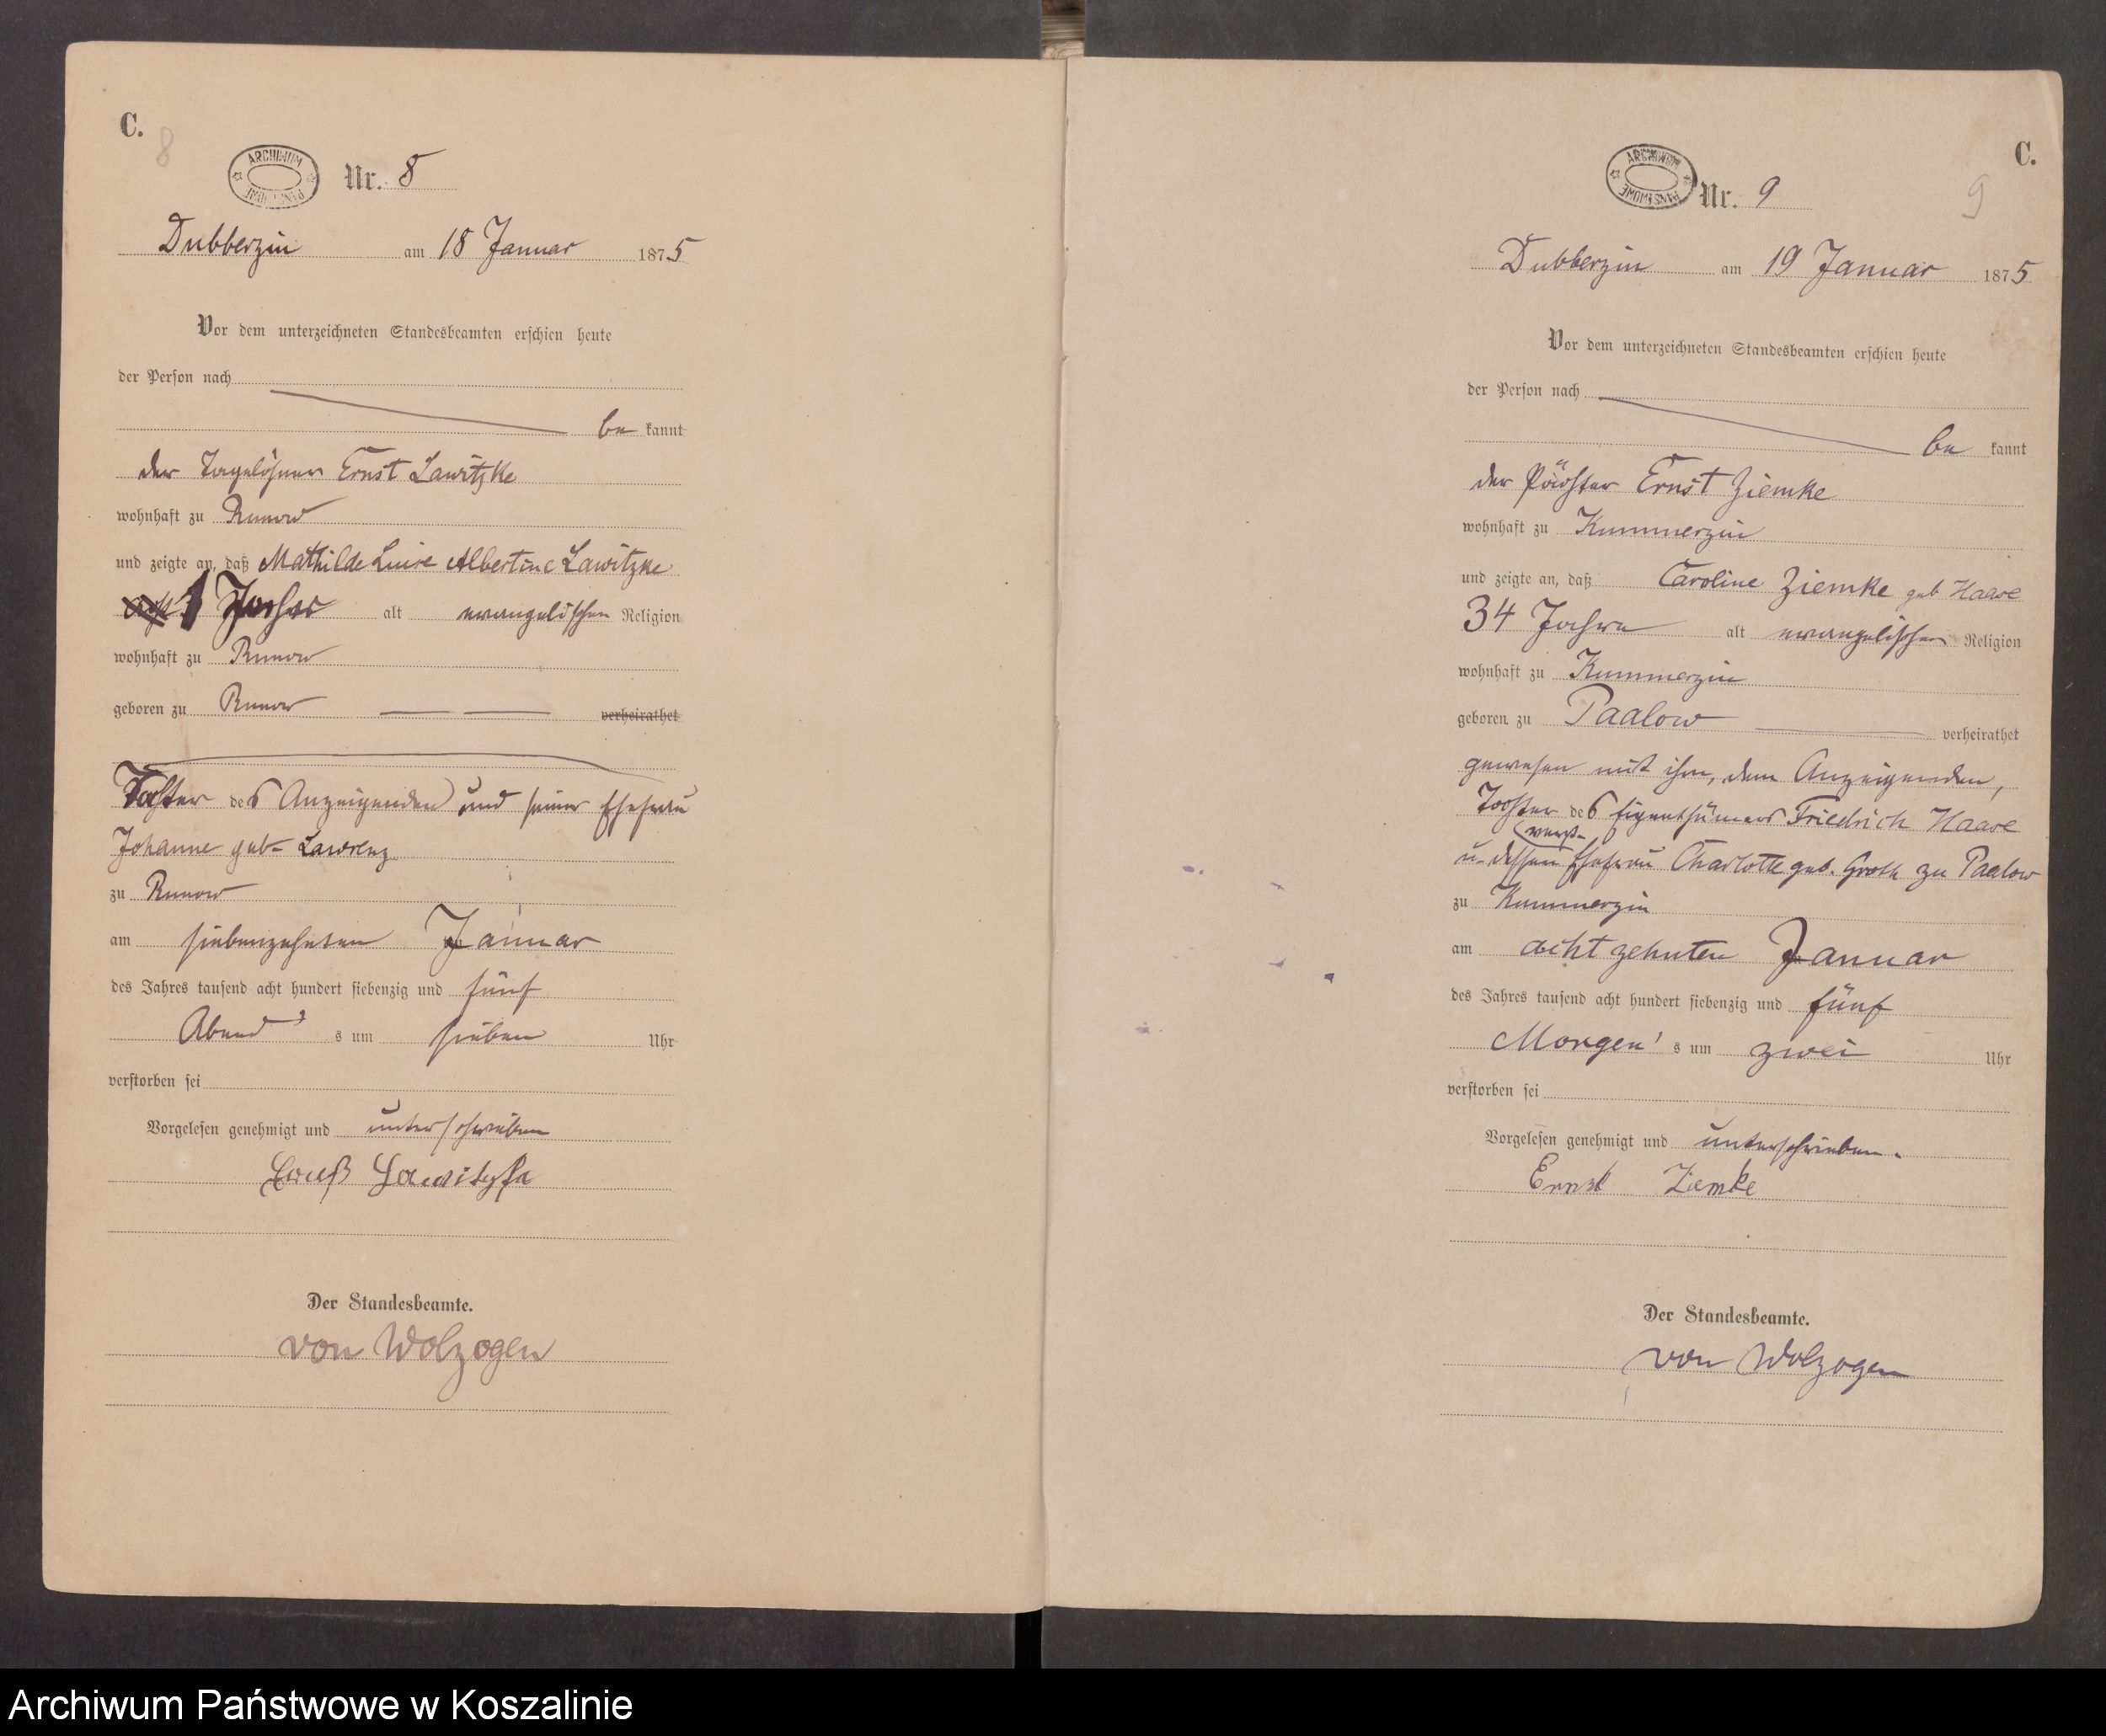 C.
8
ARCHIWUM PAŃSTWOWE
Nr. 8
Dubberzin am 18 Januar 1875
Vor dem unterzeichneten Standesbeamten erschien heute
der Person nach
be kannt
der Tagelöhner Ernst Lawitzke
wohnhaft zu Runow
und zeigte an, daß Mathilde Luise Albertine Lawitzke
1 Jahr alt evangelischer Religion
wohnhaft zu Runow
geboren zu Runow verheirathet
Tochter des Anzeigenden und seiner Ehefrau
Johanne geb. Lawrenz
zu Runow
am siebenzehnten Januar
des Jahres tausend acht hundert siebenzig und fünf
Abend's um sieben Uhr
verstorben sei
Vorgelesen genehmigt und unterschrieben
Ernst Lawitzke
Der Standesbeamte.
von Wolzogen
C.
9
ARCHIWUM PAŃSTWOWE
Nr. 9
Dubberzin am 19 Januar 1875
Vor dem unterzeichneten Standesbeamten erschien heute
der Person nach
be kannt
der Pächter Ernst Ziemke
wohnhaft zu Kummerzin
und zeigte an, daß Caroline Ziemke geb Haase
34 Jahre alt evangelischer Religion
wohnhaft zu Kummerzin
geboren zu Paalow verheirathet
gewesen mit ihm, dem Anzeigenden,
Tochter des Eigenthümers Friedrich Haase
u. dessen Ehefrau Charlotte geb. Groth zu Paalow
zu Kummerzin
am achtzehnten Januar
des Jahres tausend acht hundert siebenzig und fünf
Morgen's um zwei Uhr
verstorben sei
Vorgelesen genehmigt und unterschrieben.
Ernst Ziemke
Der Standesbeamte.
von Wolzogen
Archiwum Państwowe w Koszalinie